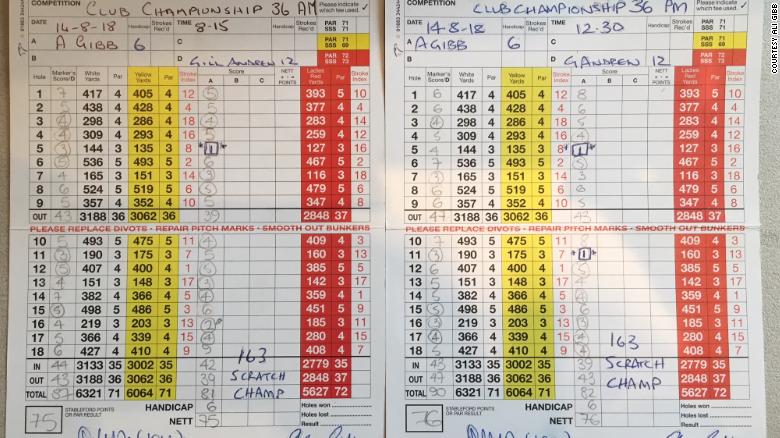 COMPETITION CLUB CHAMPIONSHIP 36 AM Please indicate which tee used
DATE 14-8-18 TIME 8-15 Handicap Strokes Rec'd PAR 71 SSS 71
A A GIBB 6 C PAR 71 SSS 69
B D 12 PAR 72 SSS 73
Hole Marker's Score/D White Yards Par Yellow Yards Par Stroke Index Score A B C NETT Ladies Red Yards Par Stroke Index
1 7 417 4 405 4 12 5 393 5 10
2 5 438 4 428 4 6 377 4 4
3 4 298 4 286 4 18 283 4 14
4 309 4 293 4 16 259 4 12
5 3 144 3 135 3 8 1 127 3 16
6 5 536 5 493 5 2 467 5 2
7 4 165 3 151 3 14 116 3 18
8 6 524 5 519 5 6 5 479 5 6
9 357 4 352 4 10 347 4 8
OUT 43 3188 36 3062 36 39 2848 37
PLEASE REPLACE DIVOTS - REPAIR PITCH MARKS - SMOOTH OUT BUNKERS
10 5 493 5 475 5 11 4 409 4 3
11 3 190 3 175 3 7 160 3 13
12 5 407 4 400 4 1 5 385 5 5
13 4 151 3 148 3 17 142 3 17
14 7 382 4 366 4 5 4 359 4 1
15 5 498 5 486 5 3 6 451 5 9
16 4 219 3 203 3 13 2 185 3 11
17 366 4 339 4 15 4 280 4 15
18 6 427 4 410 4 9 5 408 4 7
163
IN 44 3133 35 3002 35 42 2779 35
OUT 43 3188 36 3062 36 39 SCRATCH 2848 37
TOTAL 87 6321 71 6064 71 81 CHAMP 5627 72
75 STABLEFORD POINTS OR PAR RESULT HANDICAP 6 Holes won
NETT 75 Holes lost
Result
COMPETITION CLUB CHAMPIONSHIP 36 PM Please indicate which tee used
DATE 14-8-18 TIME 12.30 Handicap Strokes Rec'd PAR 71 SSS 71
A A GIBB 6 C PAR 71 SSS 69
B D G ANDREW 12 PAR 72 SSS 73
Hole Marker's Score/D White Yards Par Yellow Yards Par Stroke Index Score A B C NETT Ladies Red Yards Par Stroke Index
1 6 417 4 405 4 12 8 393 5 10
2 6 438 4 428 4 6 6 377 4 4
3 4 298 4 286 4 18 5 283 4 14
4 5 309 4 293 4 16 4 259 4 12
5 144 3 135 3 8 1 127 3 16
6 7 536 5 493 5 2 5 467 5 2
7 3 165 3 151 3 14 116 3 18
8 6 524 5 519 5 6 6 479 5 6
9 357 4 352 4 10 347 4 8
OUT 47 3188 36 3062 36 43 2848 37
PLEASE REPLACE DIVOTS - REPAIR PITCH MARKS - SMOOTH OUT BUNKERS
10 7 493 5 475 5 11 8 409 4 3
11 3 190 3 175 3 7 1 160 3 13
12 6 407 4 400 4 1 385 5 5
13 4 151 3 148 3 17 142 3 17
14 5 382 4 366 4 5 4 359 4 1
15 5 498 5 486 5 3 451 5 9
16 3 219 3 203 3 13 185 3 11
17 4 366 4 339 4 15 4 280 4 15
18 6 427 4 410 4 9 408 4 7
163
IN 43 3133 35 3002 35 39 SCRATCH 2779 35
OUT 47 3188 36 3062 36 43 CHAMP 2848 37
TOTAL 90 6321 71 6064 71 82 5627 72
76 STABLEFORD POINTS OR PAR RESULT HANDICAP 6 Holes won
NETT 76 Holes lost
Result
COURTESY ALI GIBB